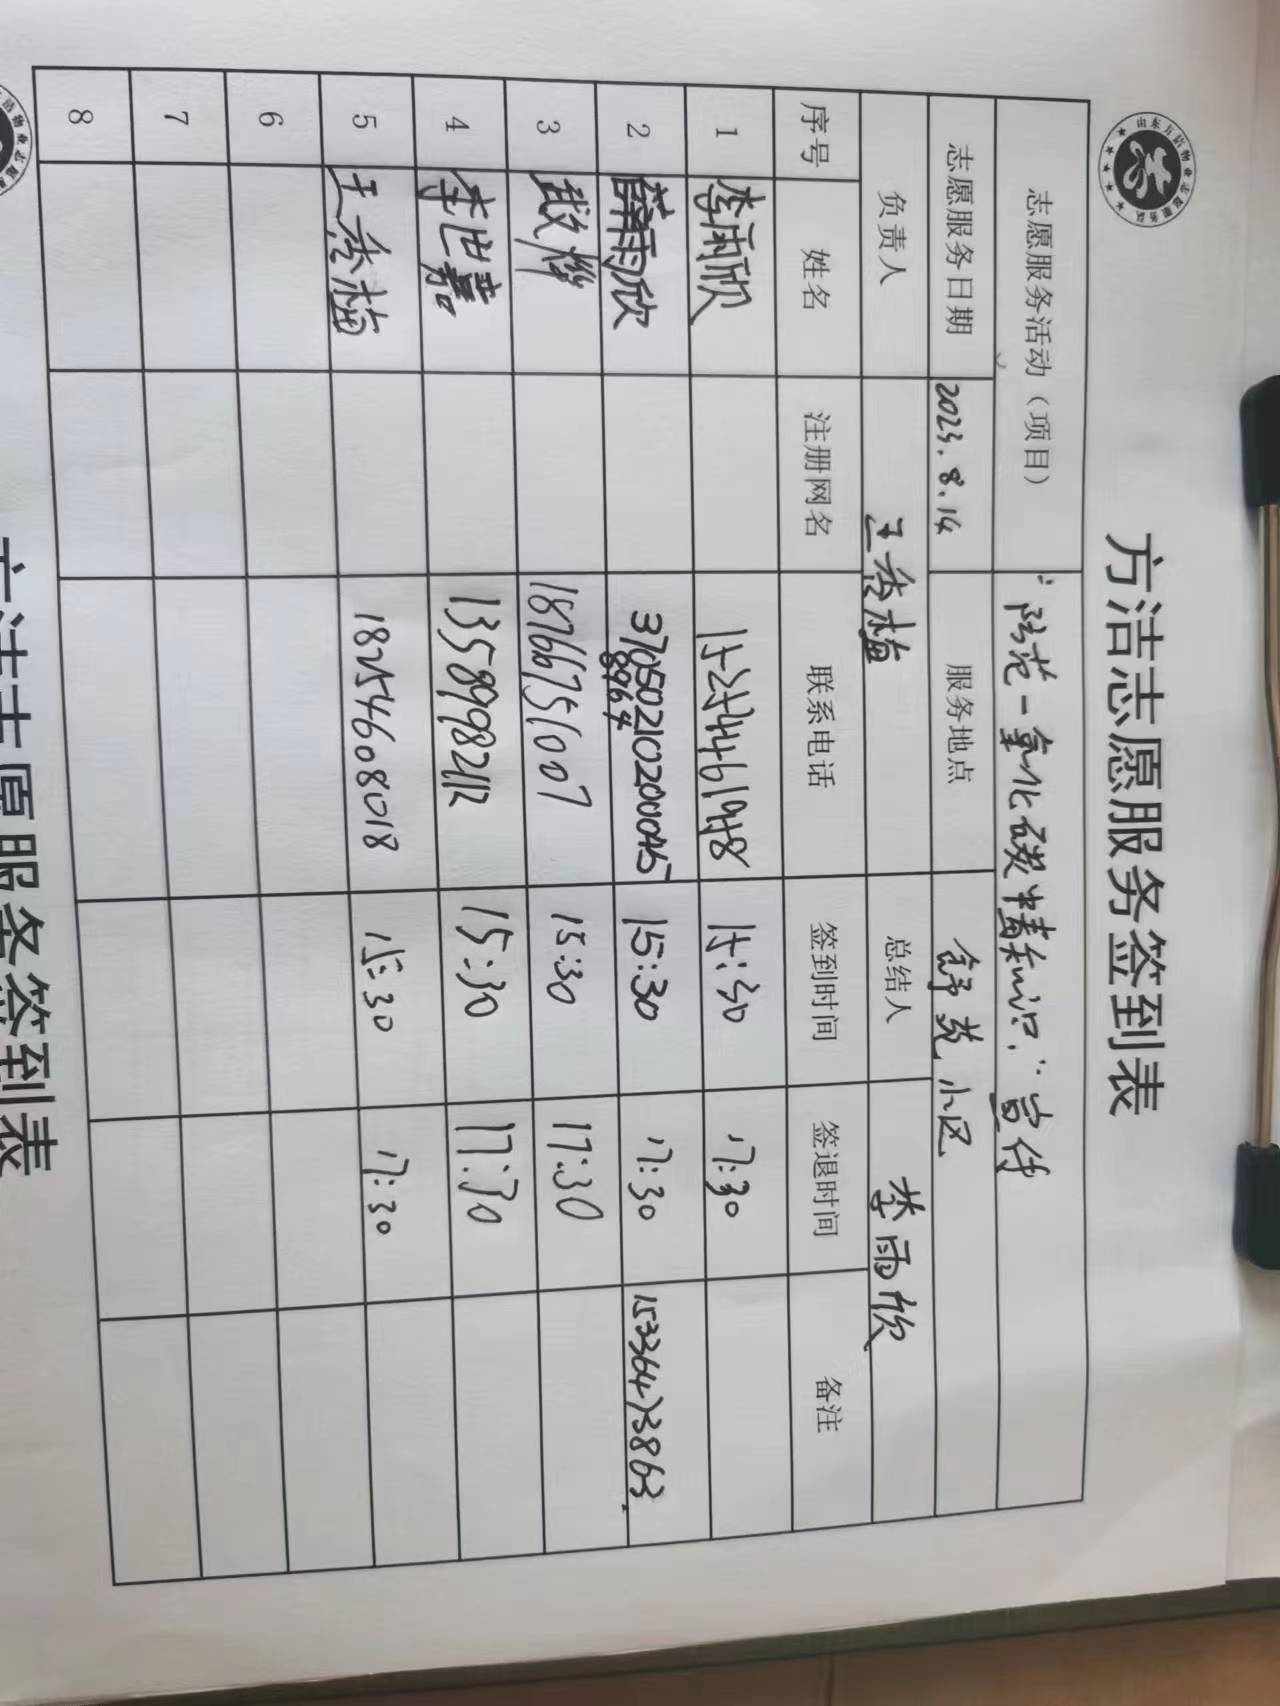 方洁志愿服务签到表
志愿服务活动（项目） "防范一氧化碳中毒知识"宣传
志愿服务日期 2023.8.14 服务地点 舒苑小区
负责人 王秀梅 总结人 李雨欣
序号 姓名 注册网名 联系电话 签到时间 签退时间 备注
1 李雨欣 15254461948 15:30 17:30
2 薛雨欣 370502102000458964 15:30 17:30 15336473863
3 18766751007 15:30 17:30
4 李世嘉 13589982112 15:30 17:30
5 王秀梅 18254608018 15:30 17:30
6
7
8
方洁志愿服务签到表